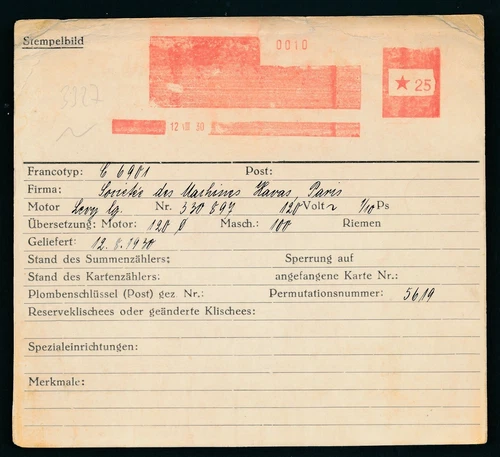 Stempelbild
0010
★ 25
3927
12 VIII 30
Francotyp: C 6901 Post:
Firma: Societée des Machines Havas, Paris
Motor Nr. 330897 120 Volt ~ 1/10 Ps
Übersetzung: Motor: 120 Ø Masch.: 100 Riemen
Geliefert: 12.8.1930
Stand des Summenzählers: Sperrung auf
Stand des Kartenzählers: angefangene Karte Nr.:
Plombenschlüssel (Post) gez. Nr.: Permutationsnummer: 5619
Reserveklischees oder geänderte Klischees:
Spezialeinrichtungen:
Merkmale: